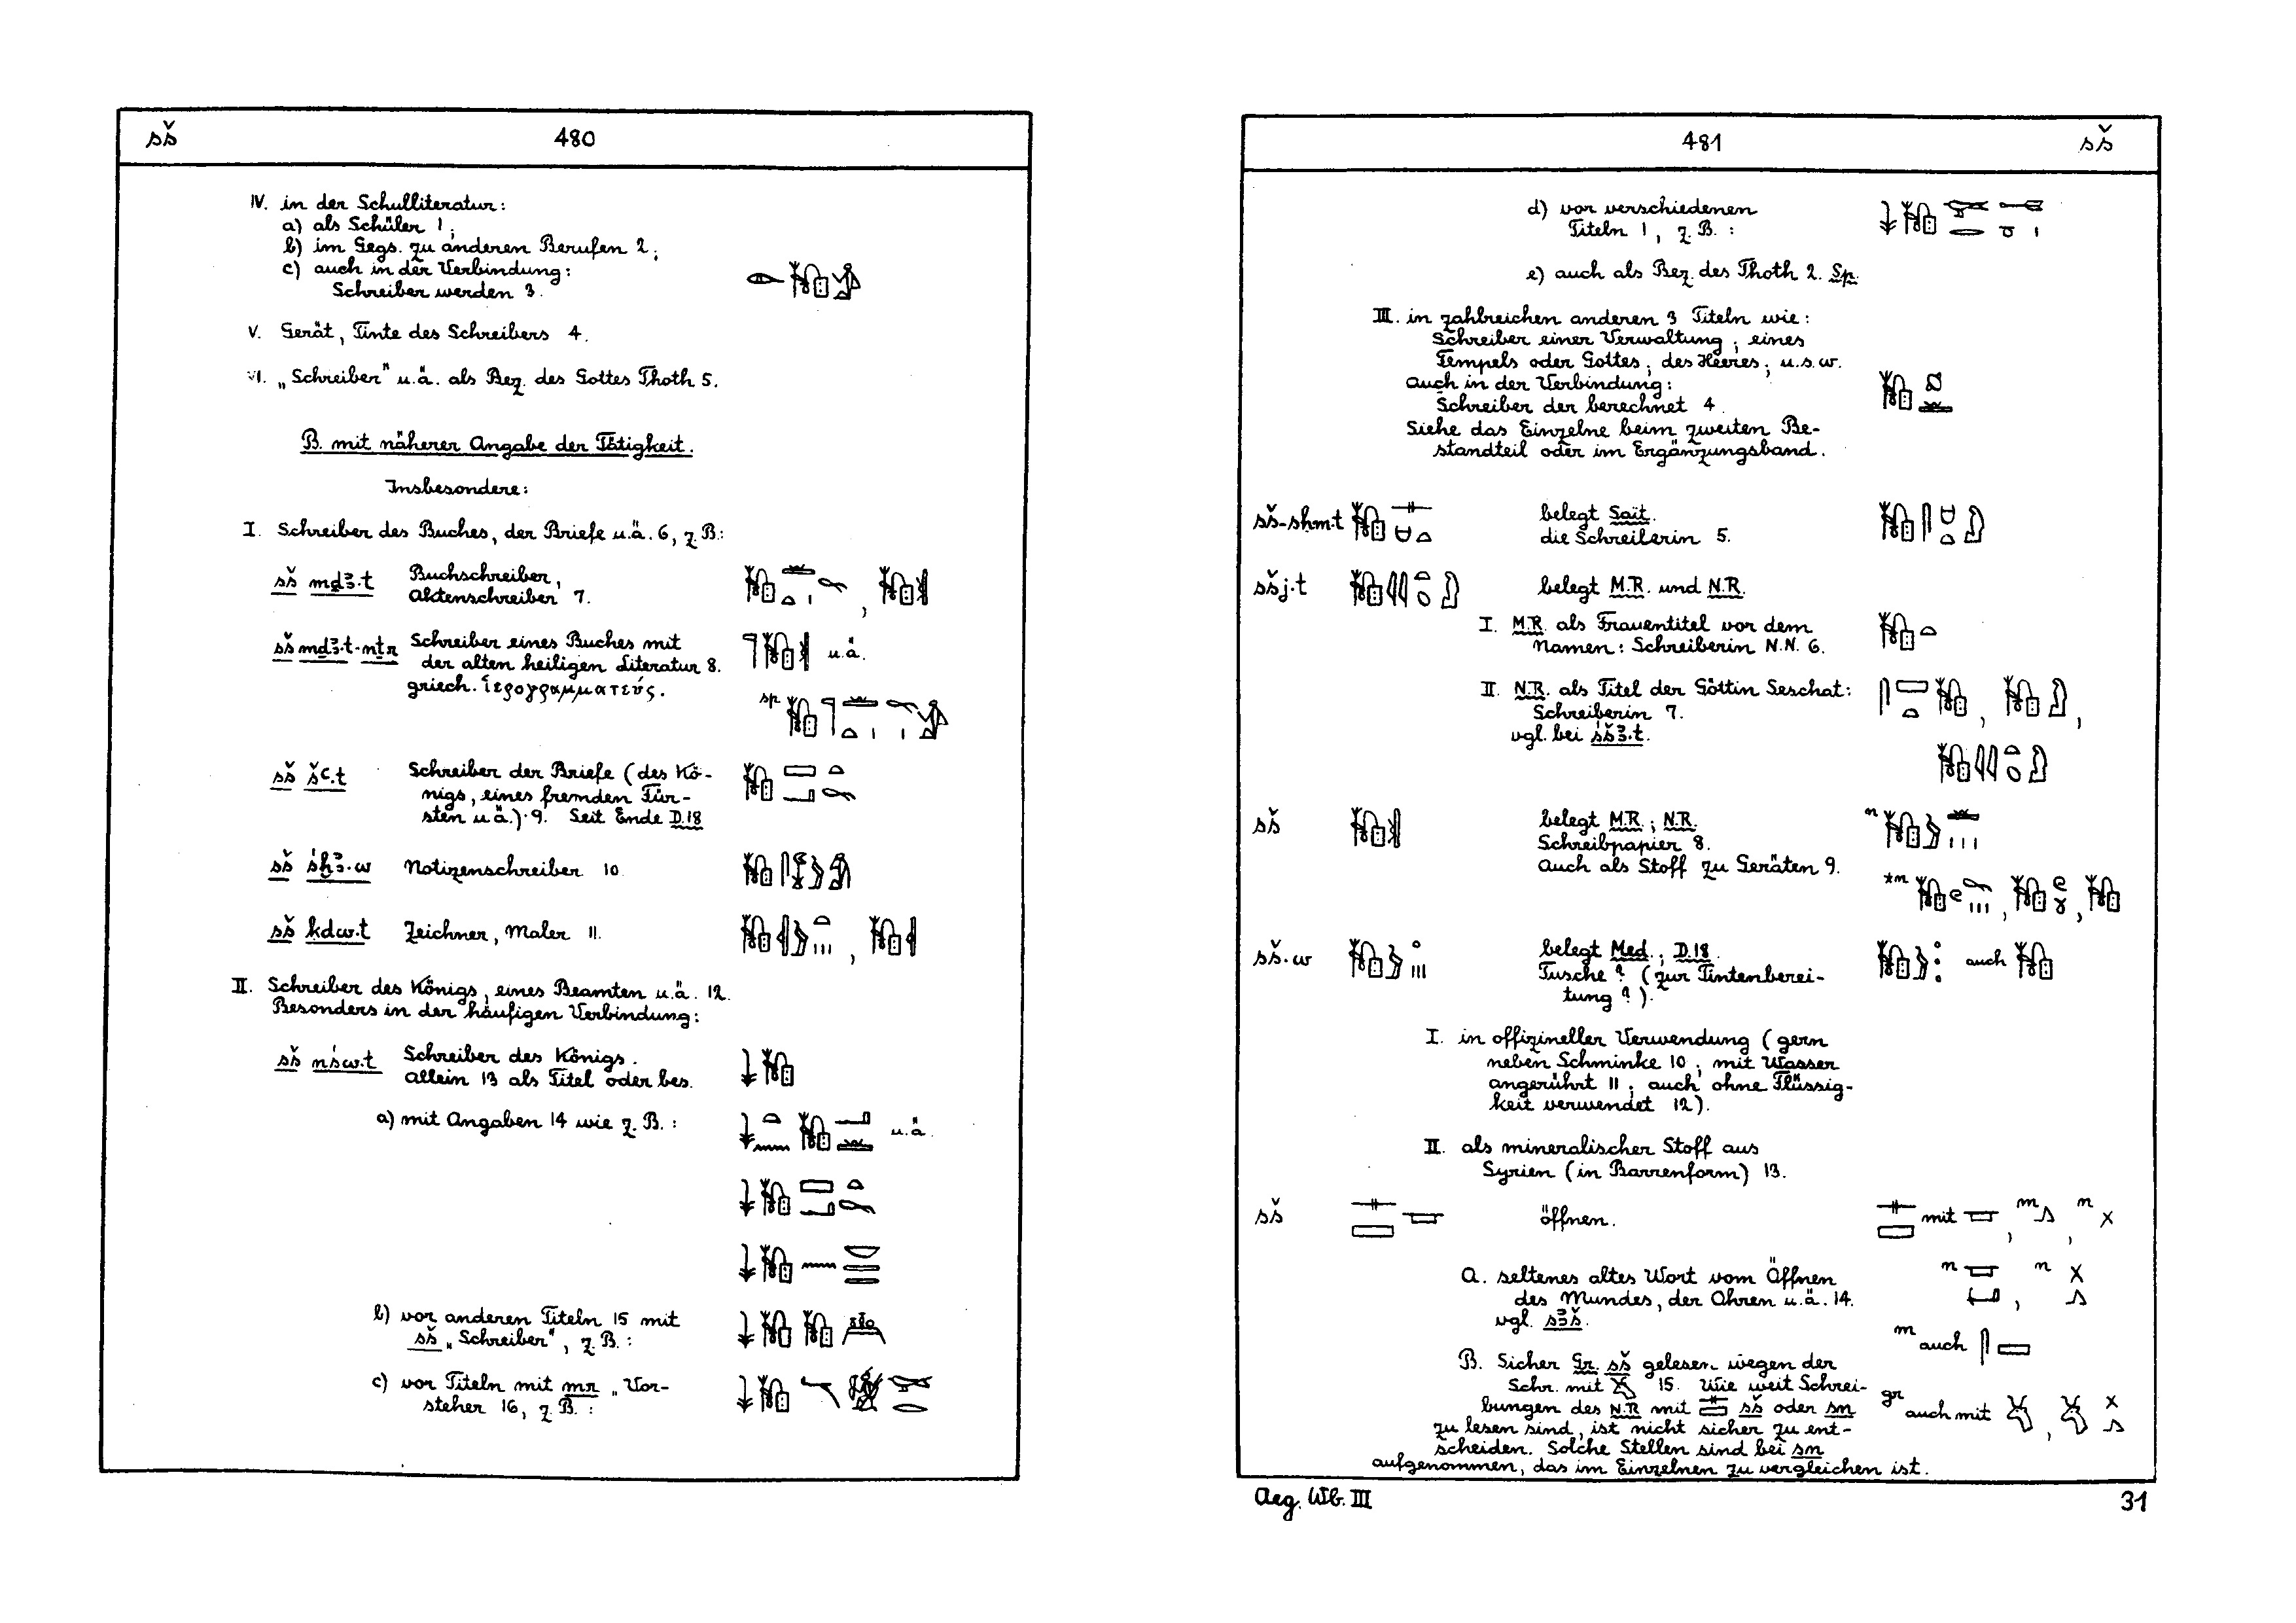 sš 480
IV. in der Schulliteratur:
a) als Schüler 1;
b) im Gegs. zu anderen Berufen 2;
c) auch in der Verbindung:
Schreiber werden 3.
V. Gerät, Tinte des Schreibers 4.
VI. „Schreiber" u.ä. als Bez. des Gottes Thoth 5.
B. mit näherer Angabe der Tätigkeit.
Insbesondere:
I. Schreiber des Buches, der Briefe u.ä. 6, z.B.:
sš mḏꜣ.t Buchschreiber,
Aktenschreiber 7.
sš mḏꜣ.t-nṯr Schreiber eines Buches mit
der alten heiligen Literatur 8. u.ä.
griech. ἱερογραμματεύς.
Sp
sš šꜥ.t Schreiber der Briefe (des Kö-
nigs, eines fremden Für-
sten u.ä.) 9. Seit Ende D.18
sš śẖꜣ.w Notizenschreiber 10
sš ḳdw.t Zeichner, Maler 11.
II. Schreiber des Königs, eines Beamten u.ä. 12.
Besonders in der häufigen Verbindung:
sš nśw.t Schreiber des Königs.
allein 13 als Titel oder bes.
a) mit Angaben 14 wie z.B.: u.ä.
b) vor anderen Titeln 15 mit
sš „Schreiber", z.B.:
c) vor Titeln mit mr „Vor-
steher 16, z.B.:
481 sš
d) vor verschiedenen
Titeln 1, z.B.:
e) auch als Bez. des Thoth 2. Sp.
III. in zahlreichen anderen 3 Titeln wie:
Schreiber einer Verwaltung; eines
Tempels oder Gottes; des Heeres; u.s.w.
auch in der Verbindung:
Schreiber der berechnet 4.
Siehe das Einzelne beim zweiten Be-
standteil oder im Ergänzungsband.
sš-sḥm.t belegt Sait.
die Schreiberin 5.
sšj.t belegt M.R. und N.R.
I. M.R. als Frauentitel vor dem
Namen: Schreiberin N.N. 6.
II. N.R. als Titel der Göttin Seschat:
Schreiberin 7.
vgl. bei śšꜣ.t.
sš belegt M.R.; N.R. n
Schreibpapier 8.
Auch als Stoff zu Geräten 9.
*n
sš.w belegt Med.; D.18. auch
Tusche? (zur Tintenberei-
tung?).
I. in offizineller Verwendung (gern
neben Schminke 10; mit Wasser
angerührt 11; auch ohne Flüssig-
keit verwendet 12).
II. als mineralischer Stoff aus
Syrien (in Barrenform) 13.
sš öffnen. mit , m , n
A. seltenes altes Wort vom Öffnen n n
des Mundes, der Ohren u.ä. 14.
vgl. sꜣš.
m auch
B. Sicher Gr. sš gelesen wegen der
Schr. mit 15. Wie weit Schrei-
bungen des N.R. mit sš oder sn gr auch mit
zu lesen sind, ist nicht sicher zu ent-
scheiden. Solche Stellen sind bei sn
aufgenommen, das im Einzelnen zu vergleichen ist.
Aeg. Wb. III 31